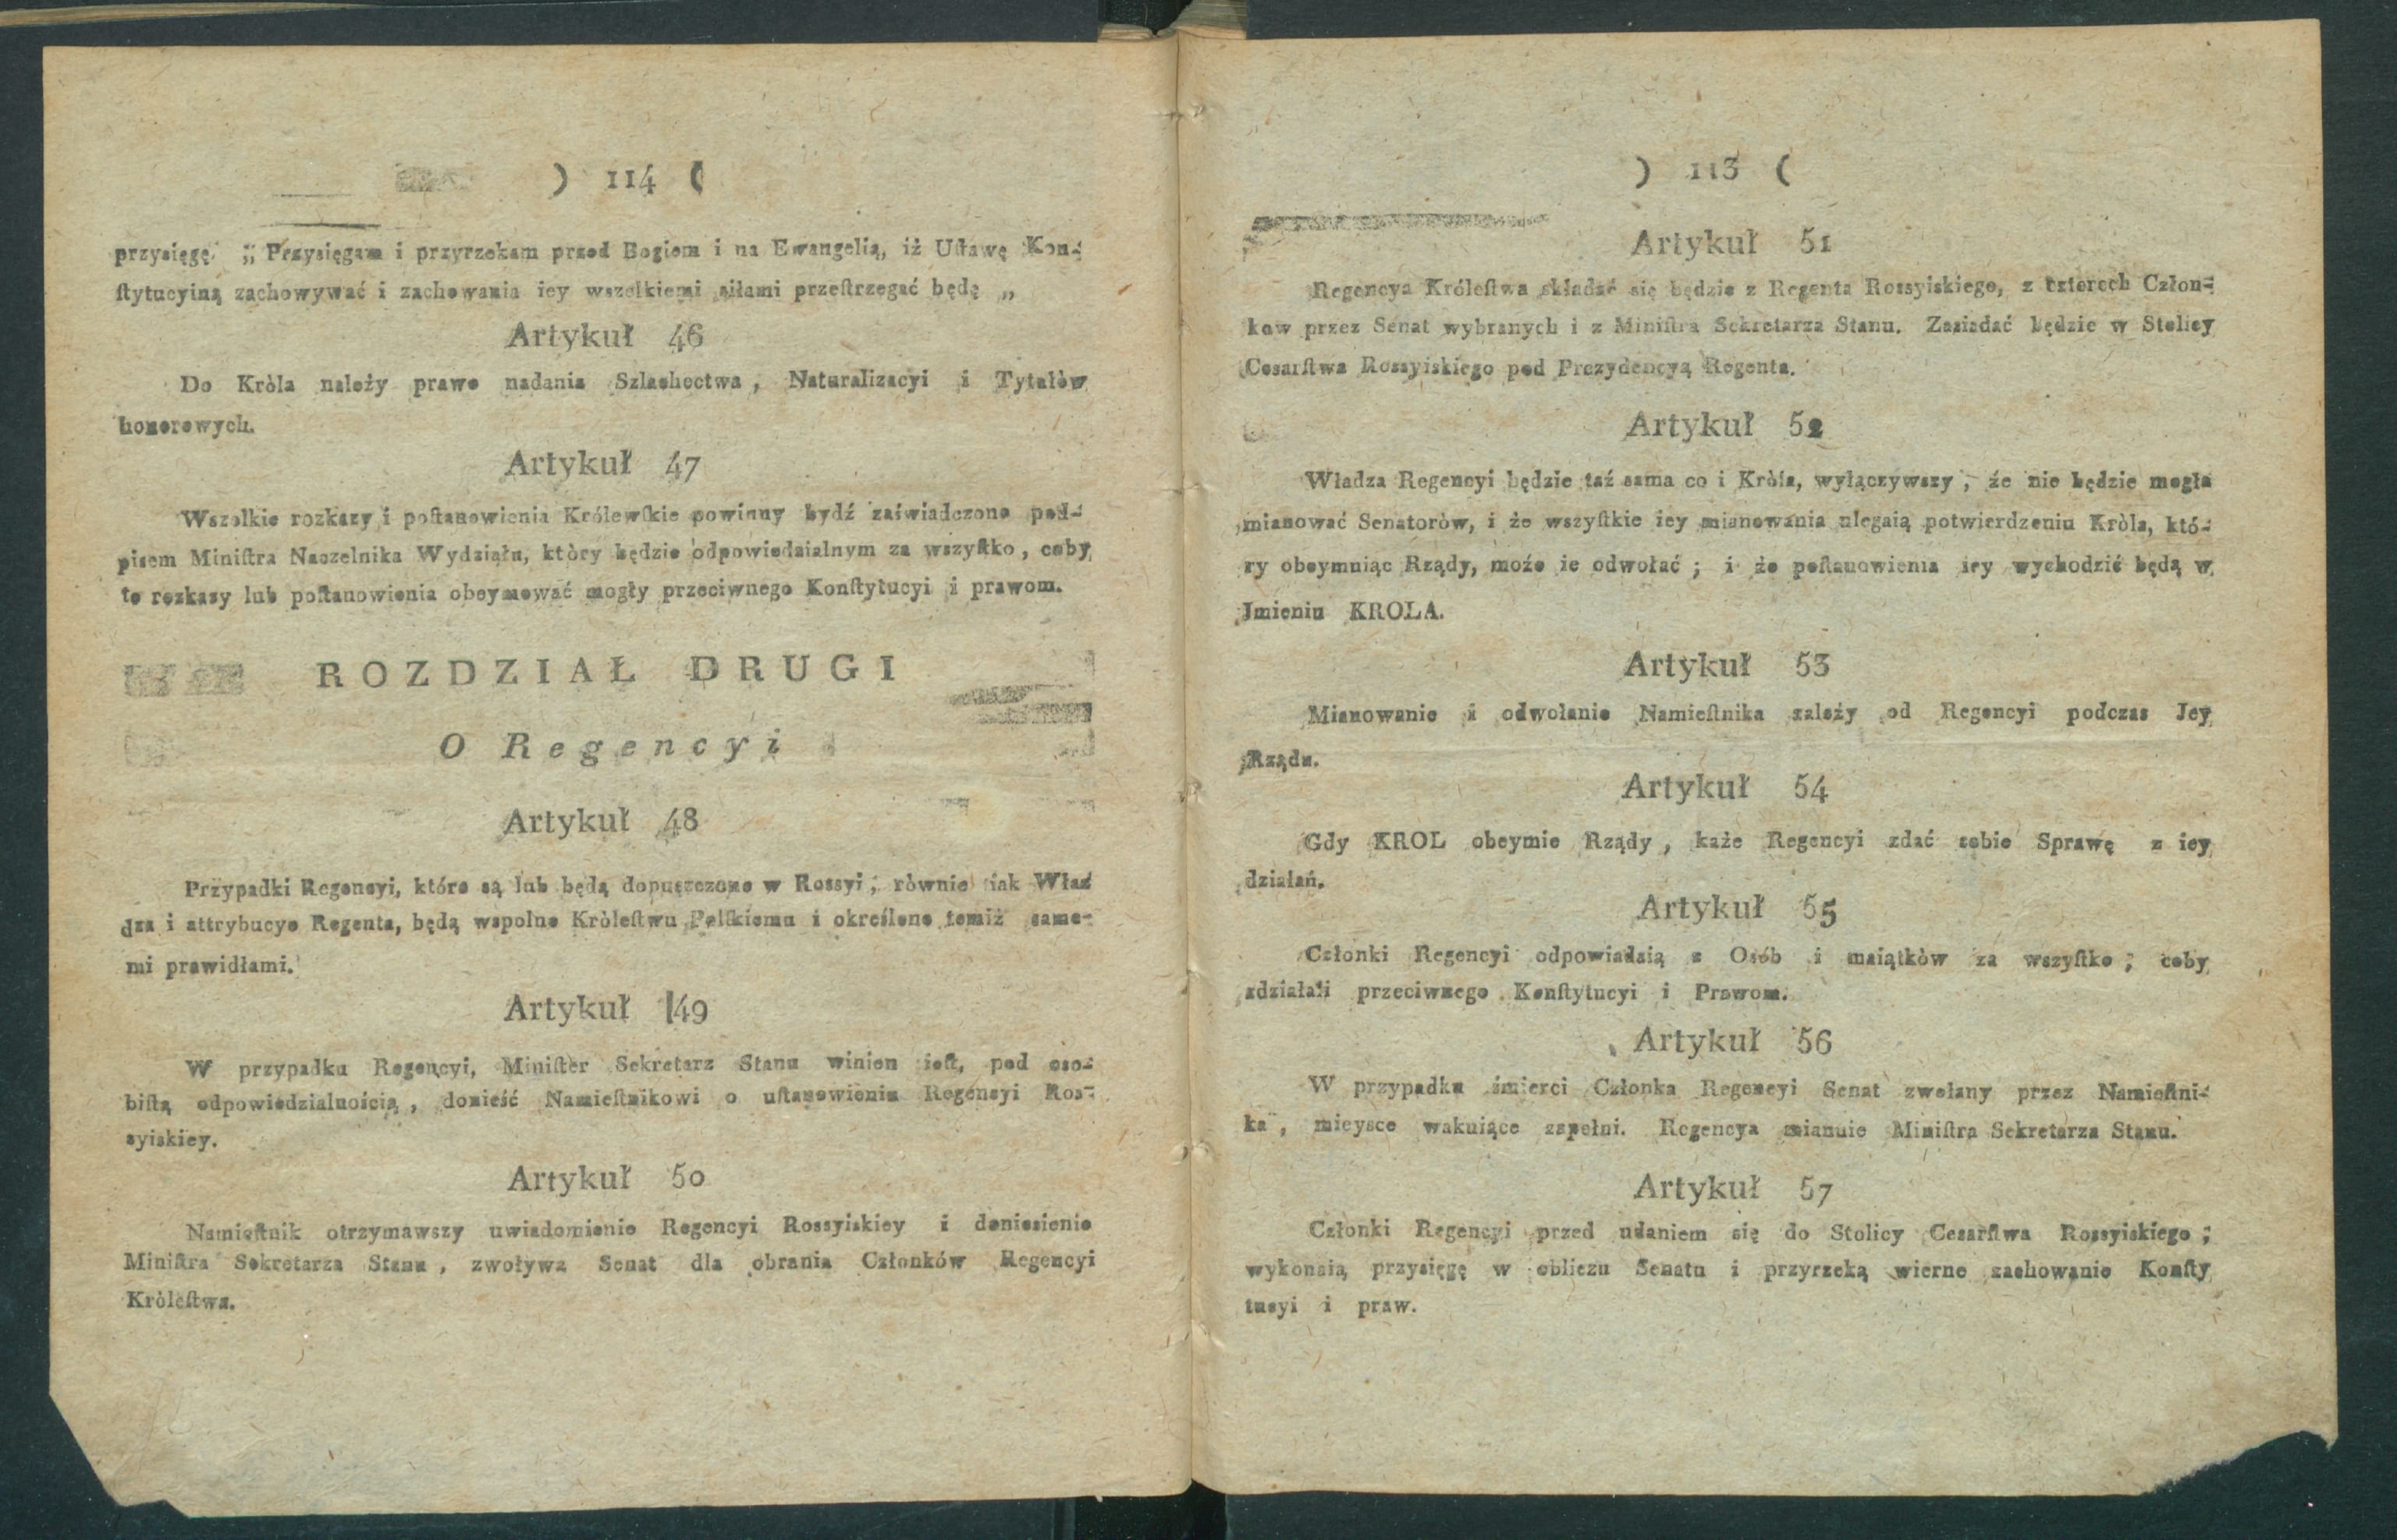 ) 114 (
przysięgę „ Przysięgam i przyrzekam przed Bogiem i na Ewangelią, iż Uſtawę Kon-
ſtytucyiną zachowywać i zachowania iey wszelkiemi siłami przeſtrzegać będę „
Artykuł 46
Do Kròla należy prawo nadania Szlachectwa , Naturalizacyi i Tytułòw
honorowych.
Artykuł 47
Wszelkie rozkazy i poſtanowienia Królewſkie powinny bydź zaświadczone pod-
pisem Miniſtra Naczelnika Wydziału, ktòry będzie odpowiedzialnym za wszyſtko , coby
te rozkazy lub poſtanowienia obeymować mogły przeciwnego Konſtytucyi i prawom.
ROZDZIAŁ DRUGI
O Regencyi
Artykuł 48
Przypadki Regencyi, które są lub będą dopuszczone w Rossyi, ròwnie iak Wład
dza i attrybucye Regenta, będą wspolne Kròleſtwu Polſkiemu i określone temiż same-
mi prawidłami.
Artykuł 49
W przypadku Regencyi, Miniſtèr Sekretarz Stanu winien ieſt, pod oso-
biſtą odpowiedzialnością , donieść Namieſtnikowi o uſtanowieniu Regencyi Ros-
syiskiey.
Artykuł 50
Namieſtnik otrzymawszy uwiadomienie Regencyi Rossyiskiey i doniesienie
Miniſtra Sekretarza Stanu , zwoływa Senat dla obrania Członków Regencyi
Kròleſtwa.
) 113 (
Artykuł 51
Regencya Króleſtwa składać się będzie z Regenta Rossyiskiego, z czterech Człon-
kow przez Senat wybranych i z Miniſtra Sekretarza Stanu. Zasiadać będzie w Stolicy
Cesarſtwa Rossyiskiego pod Prezydencyą Regenta.
Artykuł 52
Władza Regencyi będzie taź sama co i Kròla, wyłączywszy , źe nie będzie mogła
mianować Senatoròw, i że wszyſtkie iey mianowania ulegaią potwierdzeniu Kròla, któ-
ry obeymuiąc Rządy, moźe ie odwołać ; i że poſtanowienia iey wychodzić będą w
Jmieniu KROLA.
Artykuł 53
Mianowanie i odwołanie Namieſtnika zależy od Regencyi podczas Jey
Rządu.
Artykuł 54
Gdy KROL obeymie Rządy , każe Regencyi zdać sobie Sprawę z iey
działań.
Artykuł 55
Członki Regencyi odpowiadaią z Osób i maiątkòw za wszyſtko ; coby
zdziałali przeciwnego Konſtytucyi i Prawom.
Artykuł 56
W przypadku śmierci Członka Regencyi Senat zwołany przez Namieſtni-
ka , mieysce wakuiące zapełni. Regencya mianuie Miniſtra Sekretarza Stanu.
Artykuł 57
Członki Regencyi przed udaniem się do Stolicy Cesarſtwa Rossyiskiego ;
wykonaią przysięgę w obliczu Senatu i przyrzeką wierne zachowanie Konſty
tucyi i praw.